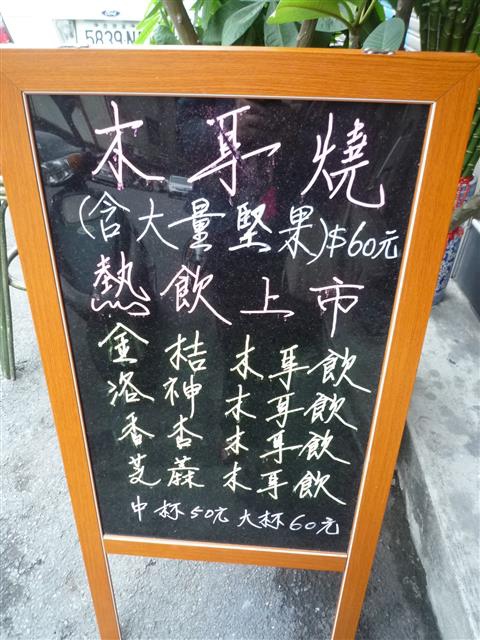 5839-N
木耳燒
(含大量堅果)$60元
熱飲上市
金桔木耳飲
洛神木耳飲
香杏木耳飲
芝蔴木耳飲
中杯50元 大杯60元